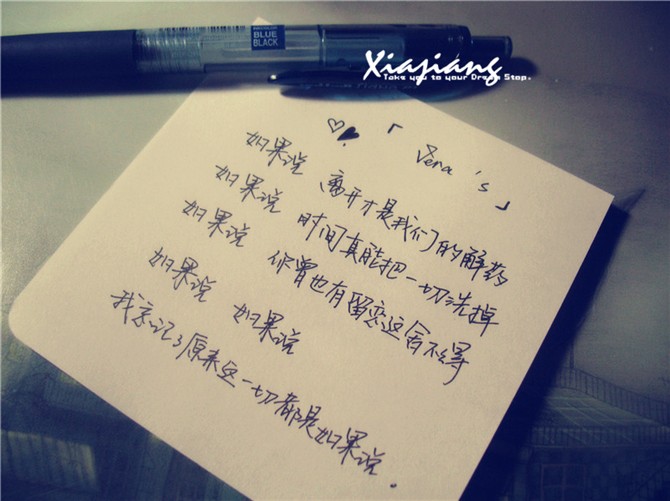 BLUE
BLACK
Xiajiang
Take you to your Dream Stop.
「 Vena 's 」
如果说 离开才是我们的解药
如果说 时间真能把一切洗掉
如果说 你曾也有留恋这舍不得
如果说 如果说
我忘记了原来这一切都是如果说。